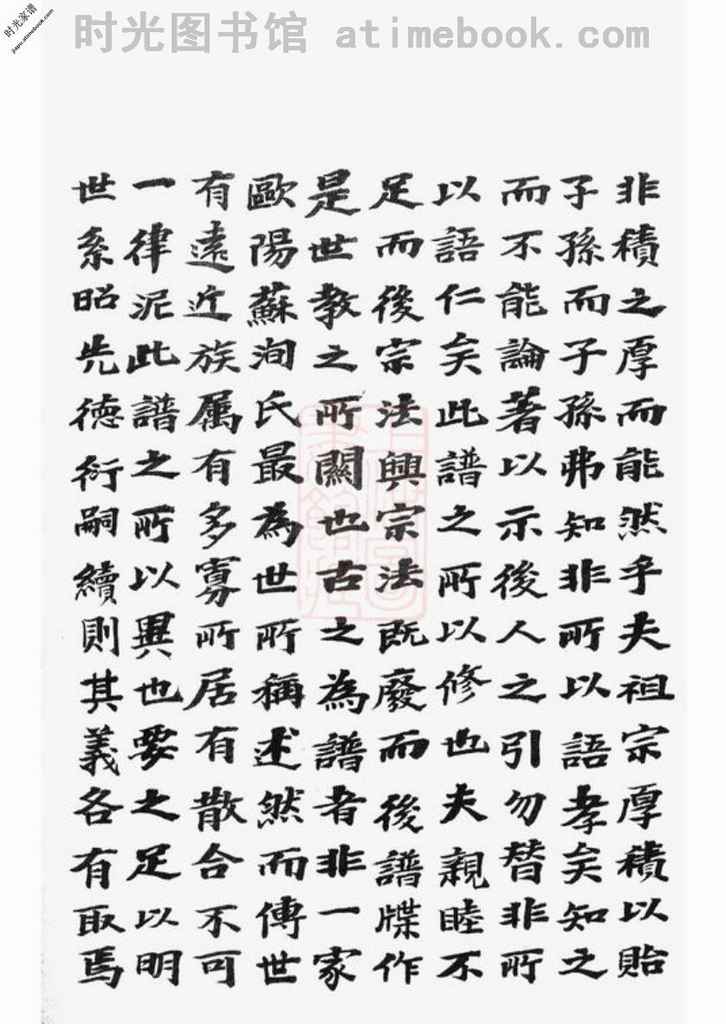 时光家谱
jiapu.atimebook.com
时光图书馆 atimebook.com
非積之厚而能然乎夫祖宗厚積以貽
子孫而子孫弗知非所以語孝矣知之
而不能論著以示後人之引勿替非所
以語仁矣此譜之所以修也夫親睦不
足而後宗法興宗法既廢而後譜牒作
是世教之所關也古之為譜者非一家
歐陽蘇洵氏最為世所稱述然而傳世
有遠近族属有多寡所居有散合不可
一律泥此譜之所以異也要之足以明
世系昭先德衍嗣續則其義各有取焉